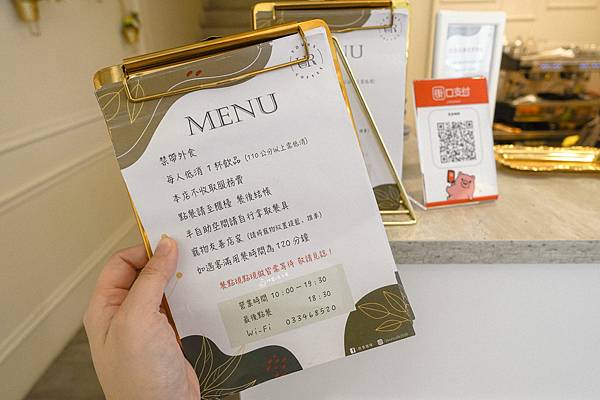 MENU
禁帶外食
每人低消 1 杯飲品 (110 公分以上需低消)
本店不收取服務費
點餐請至櫃檯 餐後結帳
半自助空間請自行拿取餐具
寵物友善店家 (請將寵物放置提籃、推車)
如遇客滿用餐時間為 120 分鐘
餐點現點現做皆需等待 敬請見諒!
營業時間 10:00-19:30
最後點餐 18:30
Wi-Fi 033468520
CR
NU
街口支付